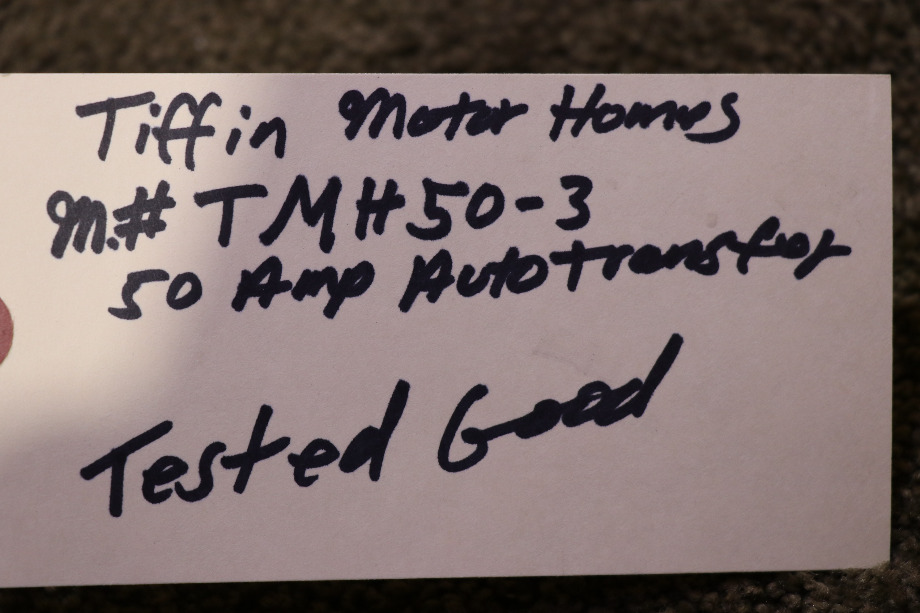 Tiffin Motor Homes
M.# TMH50-3
50 Amp Autotransfer
Tested Good